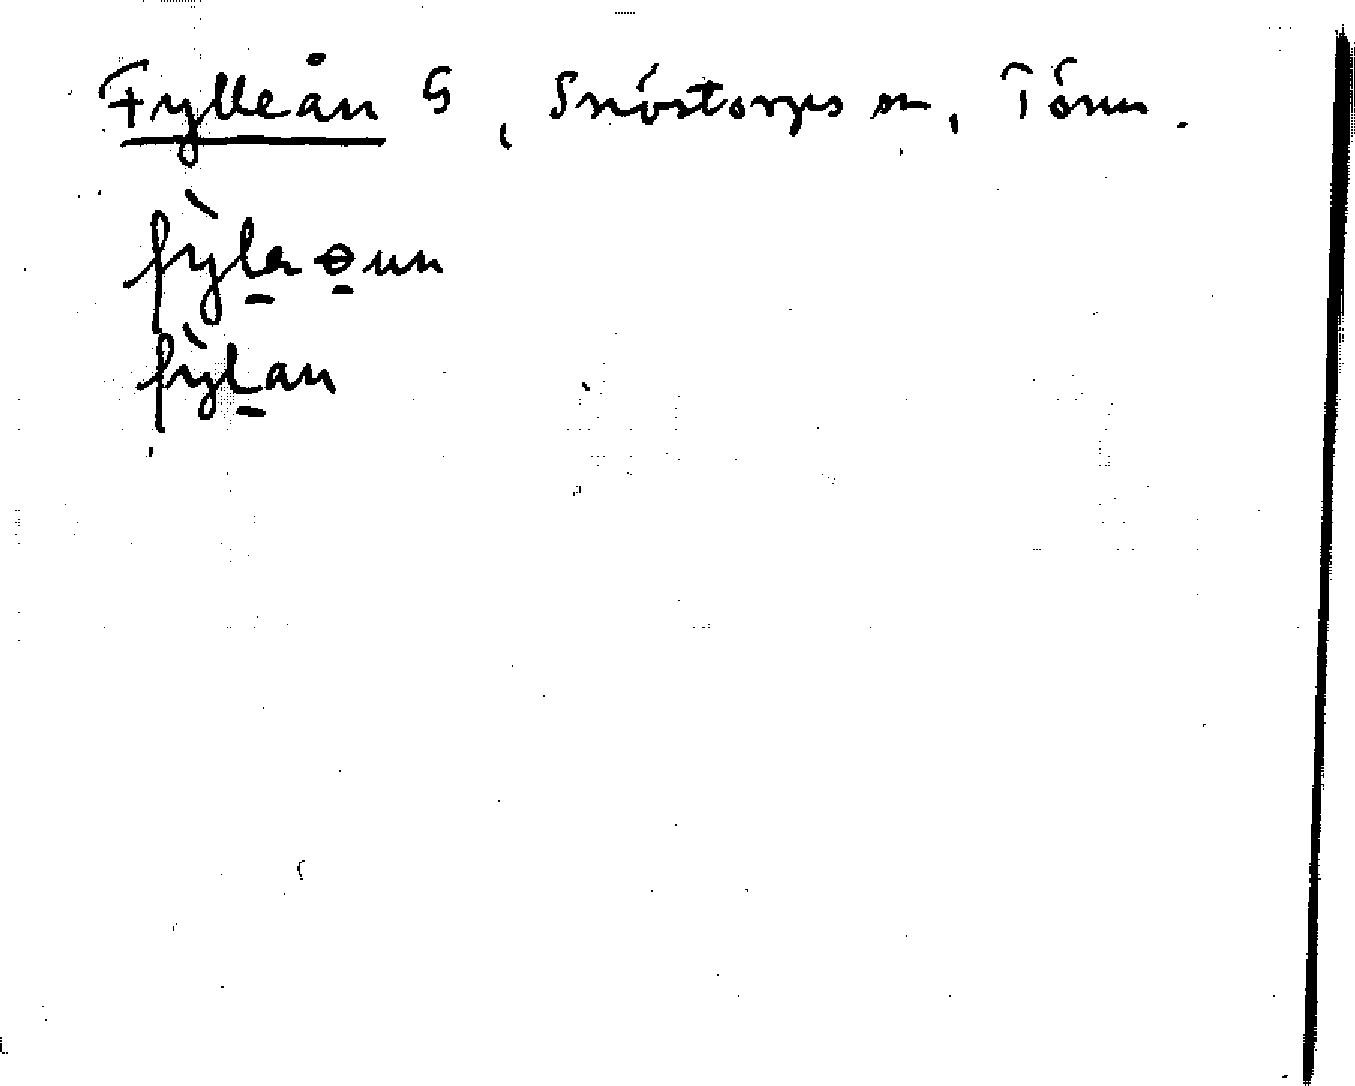 Fylleån 5, Snöstorps sn, Tönn.
fỳl̲a ɵ̲un
fỳl̲an